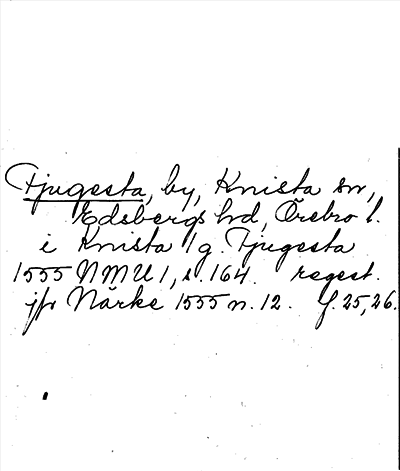 Tjugesta, by, Knista sn,
Edsbergs hd, Örebro l.
i Knista lg. Tjugesta
1555 NMU 1, s. 164. regest.
jfr Närke 1555 n. 12. f. 25, 26.